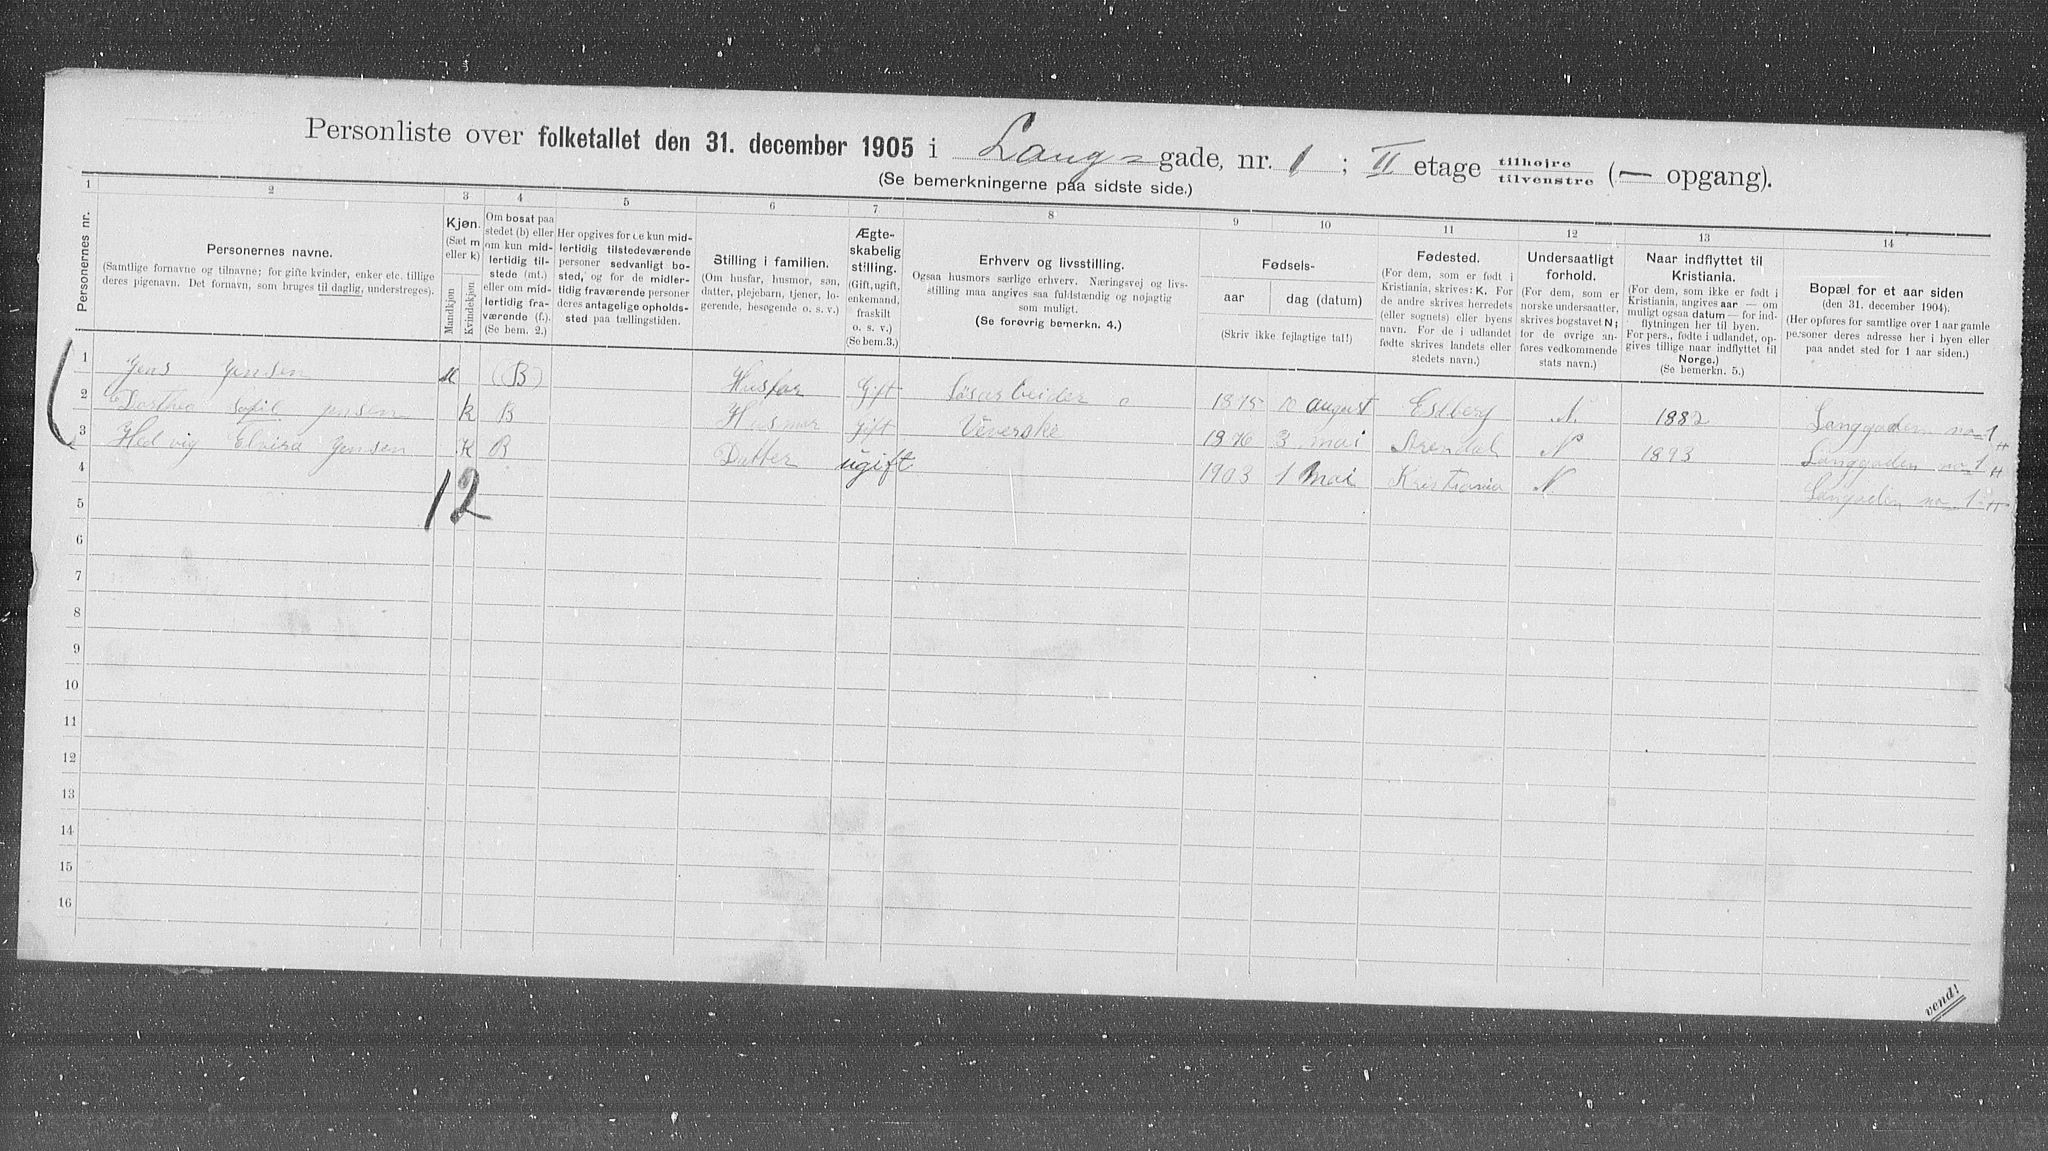 Personliste over folketallet den 31. december 1905 i Lang- gade, nr. 1; II etage tilhøjre tilvenstre (— opgang).
(Se bemerkningerne paa sidste side.)
1 2 3 4 5 6 7 8 9 10 11 12 13 14
Personernes nr.
Personernes navne.
(Samtlige fornavne og tilnavne; for gifte kvinder, enker etc. tillige
deres pigenavn. Det fornavn, som bruges til daglig, understreges).
Kjøn.
(Sæt m
eller k)
Mandkjøn
Kvindekjøn
Om bosat paa
stedet (b) eller
om kun mid-
lertidig til-
stede (mt.)
eller om mid-
lertidig fra-
værende (f.).
(Se bem. 2.)
Her opgives for de kun mid-
lertidig tilstedeværende
personer sedvanligt bo-
sted, og for de midler-
tidig fraværende personer
deres antagelige opholds-
sted paa tællingstiden.
Stilling i familien.
(Om husfar, husmor, søn,
datter, plejebarn, tjener, lo-
gerende, besøgende o. s. v.)
Ægte-
skabelig
stilling.
(Gift, ugift,
enkemand,
fraskilt
o. s. v.)
(Se bem.3.)
Erhverv og livsstilling.
Ogsaa husmors særlige erhverv. Næringsvej og livs-
stilling maa angives saa fuldstændig og nøjagtig
som muligt.
(Se forøvrig bemerkn. 4.)
Fødsels-
aar
dag (datum)
(Skriv ikke fejlagtige tal!)
Fødested.
(For dem, som er født i
Kristiania, skrives: K. For
de andre skrives herredets
(eller sognets) eller byens
navn. For de i udlandet
fødte skrives landets eller
stedets navn.)
Undersaatligt
forhold.
(For dem, som er
norske undersaatter,
skrives bogstavet N;
for de øvrige an-
føres vedkommende
stats navn.)
Naar indflyttet til
Kristiania.
(For dem, som ikke er født i
Kristiania, angives aar — om
muligt ogsaa datum — for ind-
flytningen her til byen.
For pers., fødte i udlandet, op-
gives tillige naar indflyttet til
Norge.)
(Se bemerkn. 5.)
Bopæl for et aar siden
(den 31. december 1904).
(Her opføres for samtlige over 1 aar gamle
personer deres adresse her i byen eller
paa andet sted for 1 aar siden.)
1 Jens Jensen M (B) Husfar Gift Løsarbeider 1875 10 august N. 1882 Langgaden no 1 H
2 Dorthea Sofil Jensen k B Husmor Gift Veverske 1876 3 mai Arendal N 1893 Langgaden no 1 H
3 Hedvig Elvira Jensen K B Datter ugift 1903 1 Mai Kristiania N no 1 H
12
4
5
6
7
8
9
10
11
12
13
14
15
16
vend!